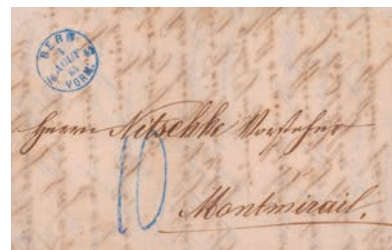 BERN
AOUT
VORM.
Herrn Nitschke Vorsteher
10
Montmirail.